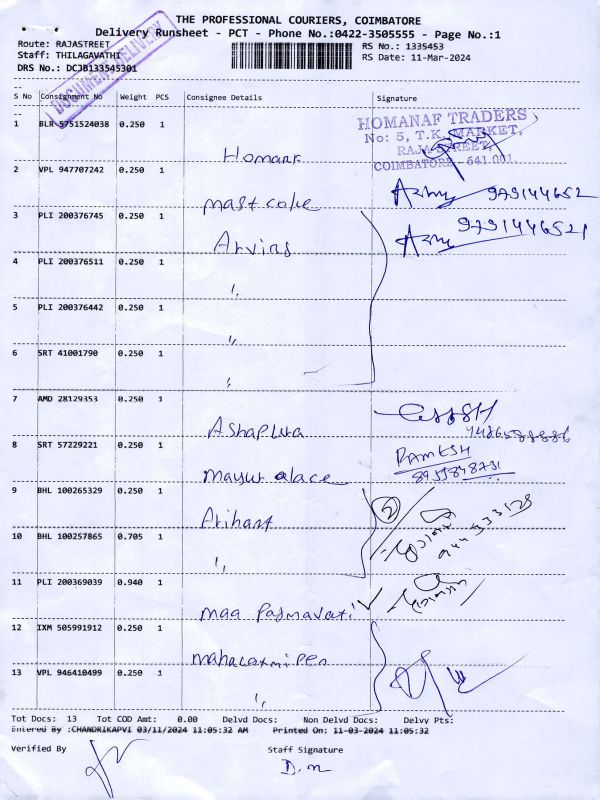 THE PROFESSIONAL COURIERS, COIMBATORE
Delivery Runsheet - PCT - Phone No.:0422-3505555 - Page No.:1
Route: RAJASTREET
RS No.: 1335453
Staff: THILAGAVATHI
RS Date: 11-Mar-2024
DRS No.: DCJB133545301
DOCUMENT DELIVERY
S No Consignment No Weight PCS Consignee Details Signature
HOMANAF TRADERS
No: 5, T.K. MARKET,
RAJA STREET,
COIMBATORE - 641 001.
1 BLR 5751524038 0.250 1
2 VPL 947707242 0.250 1
3 PLI 200376745 0.250 1
Arvins
4 PLI 200376511 0.250 1
"
5 PLI 200376442 0.250 1
"
6 SRT 41001790 0.250 1
"
7 AMD 28129353 0.250 1
Ashapura
8 SRT 57229221 0.250 1
RAMESH
9 BHL 100265329 0.250 1
Arihant
2
10 BHL 100257865 0.705 1
"
11 PLI 200369039 0.940 1
maa Padmavati
12 IXM 505991912 0.250 1
mahalaxmi Pen
13 VPL 946410499 0.250 1
"
Tot Docs: 13 Tot COD Amt: 0.00 Delvd Docs: Non Delvd Docs: Delvy Pts:
Entered By :CHANDRIKAPVI 03/11/2024 11:05:32 AM Printed On: 11-03-2024 11:05:32
Verified By Staff Signature
D. m